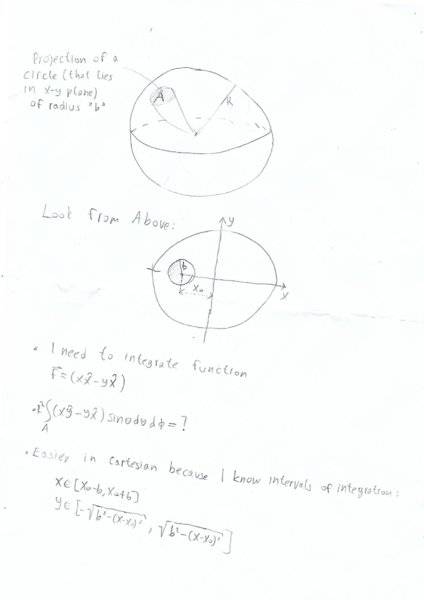 Projection of a
circle (that lies
in x-y plane)
of radius "b"
A
R
Look from Above:
y
b
x₀
x
• I need to integrate function
F⃗ = (xx̂ - yŷ)
(xŷ - yx̂) sinθdθdϕ = ?
A
• Easier in cartesian because I know intervals of integration:
x ∈ [x₀-b, x₀+b]
y ∈ [-√(b²-(x-x₀)²), √(b²-(x-x₀)²)]